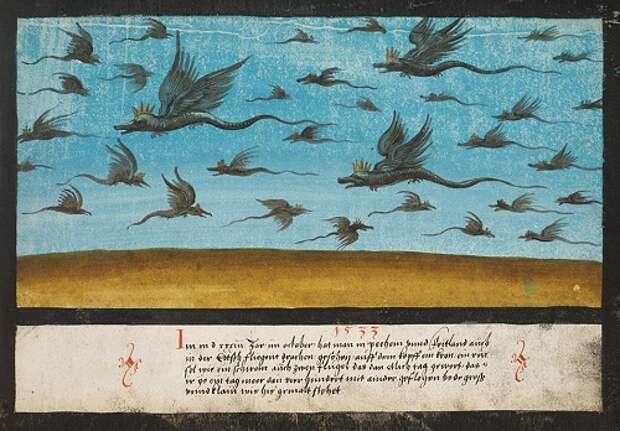 1533
Im m d xxxiii Jar im october hat man in pechem vnnd foitland auch
in der fliegent drachen gesehen auff dem kopff ein kron ein rüe
sel wie ein schwein auch zwen fligel das dan etlich tag gewert das
ir ye ein tag meer dan vier hundert mit ainder geflogen bede gross
vnnd klain wie hie gemalt stehet